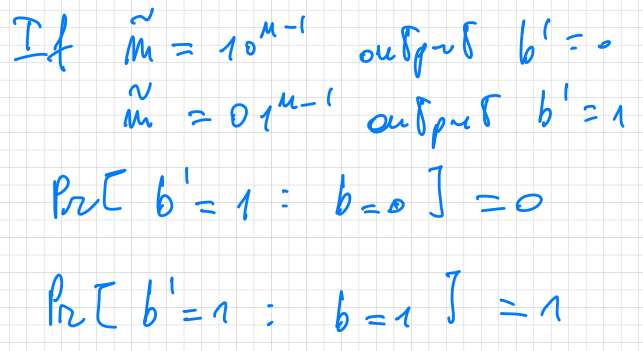 If m̃ = 10ⁿ⁻¹ output b' = 0
m̃ = 01ⁿ⁻¹ output b' = 1
Pr[ b' = 1 : b = 0 ] = 0
Pr[ b' = 1 : b = 1 ] = 1